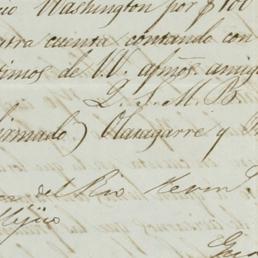 cio Washington por $100
tra cuenta, contando con
timos de VV. afmos. amig
L. S. M. B.
firmado) Olanagarre y
del Rio Kevin
Mejico